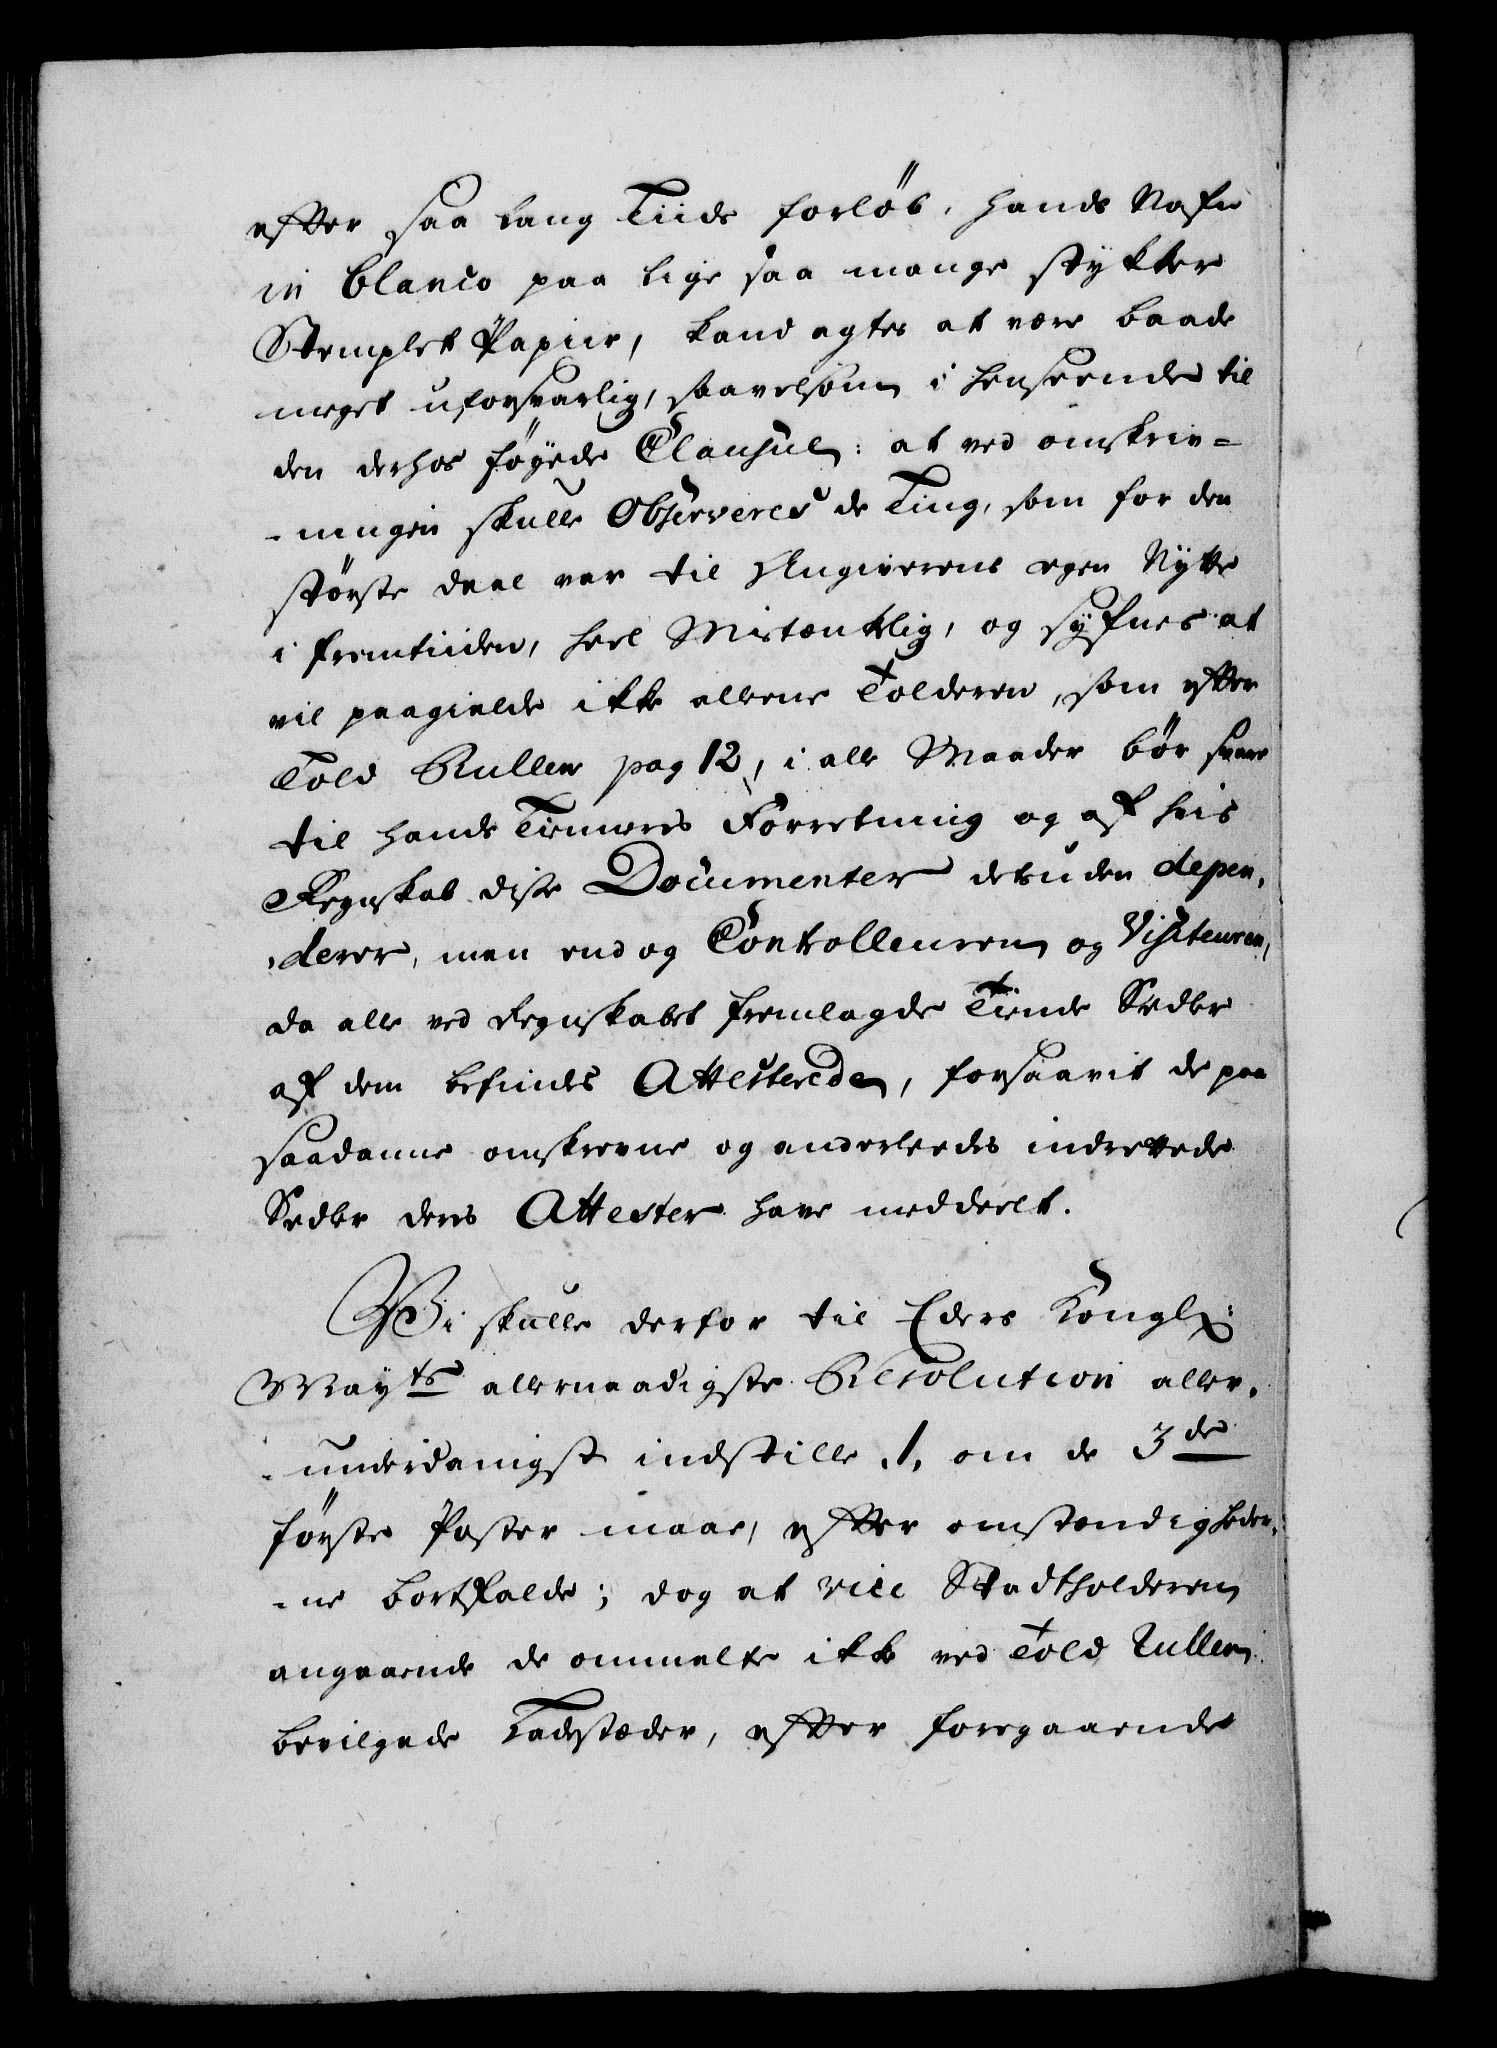 efter saa lang Tiids forløb, hands Nafn
in blanco paa lige saa mange stykker
Stemplet Papiir, kand agtes at være baade
meget uforsvarlig, saavelsom i henseende til
den derhos føyede Clausul: at ved omskriv=
-ningen skulle Observeres de Ting, som for den
største deel var til Angiverens egen Nytte
i fremtiiden, heel Mistænklig, og syfnes at
vil paagielde ikke alleene Tolderen, som efter
Told Rullen pag 12, i alle Maader bør svare
til hands Tieneres Forretning og af hvis
Regnskab disse Documenter desuden depen-
-derer, men end og Controlleuren og Visiteuren,
da alle ved Regnskabet fremlagde Tiende Sedler
af dem befindes Attesterede, forsaavit de paa
saadanne omskrevne og anderleedes indrettede
Sedler deres Attester have meddeelt.
Vi skulle derfor til Eders Kongl:
Mayts allernaadigste Resolution aller-
-underdanigst indstille 1, om de 3de
første Poster maae, efter omstændigheder-
-ne bortfalde; dog at vice Stadtholderen
angaaende de ommelte ikke ved Told Rullen
bevilgede Ladstæder, efter foregaaende